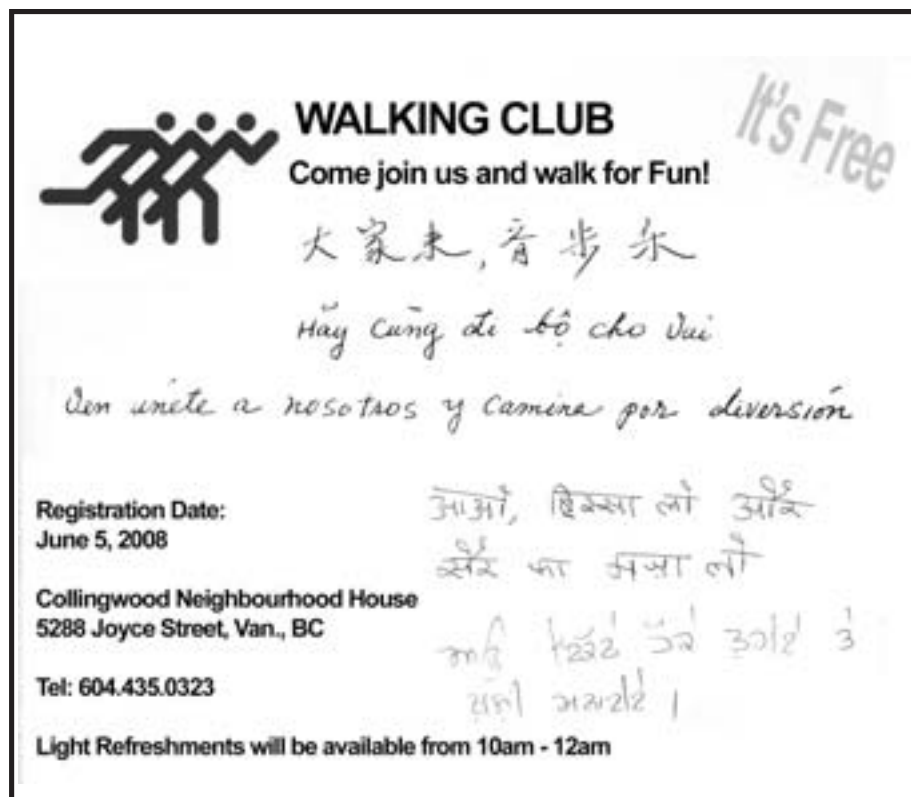 It's Free
WALKING CLUB
Come join us and walk for Fun!
大家来,音步乐
Hãy cùng đi bộ cho vui
Ven unete a nosotros y camina por diversión
Registration Date:
June 5, 2008
Collingwood Neighbourhood House
5288 Joyce Street, Van., BC
Tel: 604.435.0323
Light Refreshments will be available from 10am - 12am
आओ, हिस्सा लो और
सैर का मज़ा लो